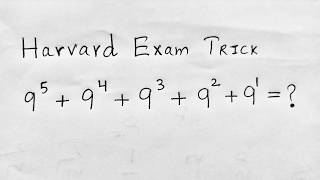 Harvard Exam TRICK
9⁵ + 9⁴ + 9³ + 9² + 9¹ = ?